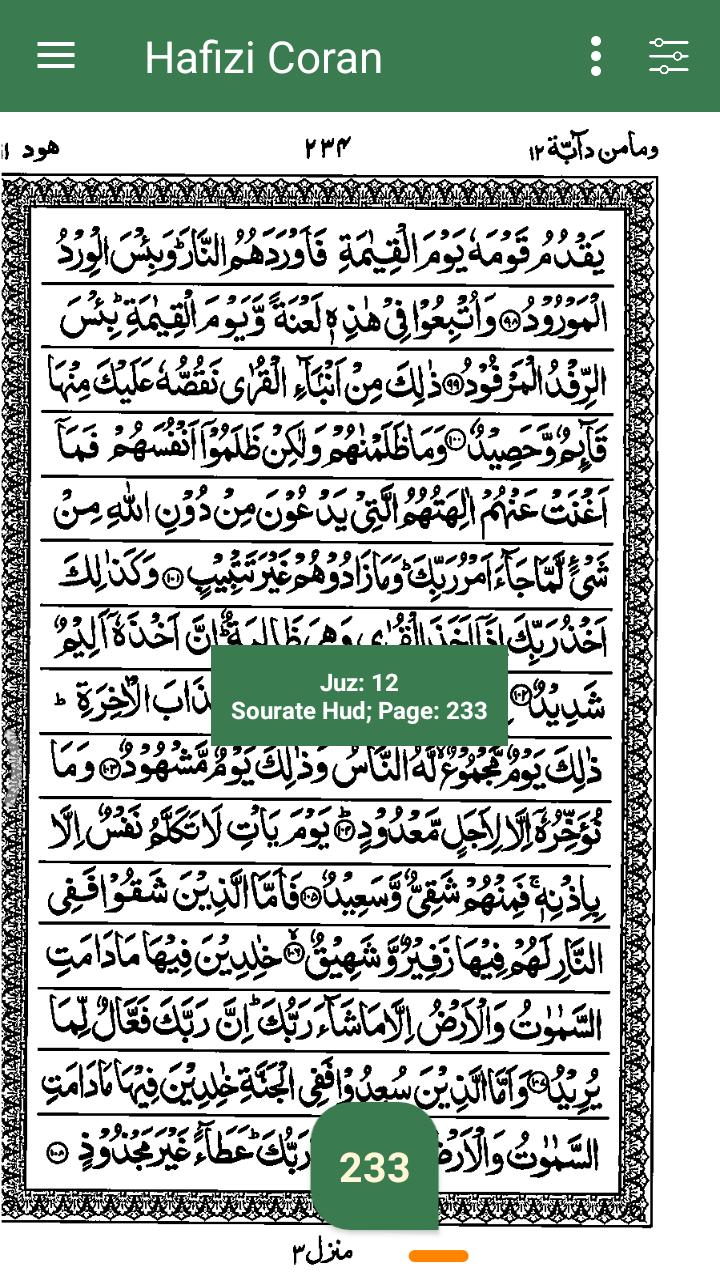 Hafizi Coran
ومامن دآبّة ١٢
٢٣٤
هود
يَقْدُمُ قَوْمَهٗ يَوْمَ الْقِيٰمَةِ فَاَوْرَدَهُمُ النَّارَ ؕ وَبِئْسَ الْوِرْدُ
الْمَوْرُوْدُ ﴿۹۸﴾ وَاُتْبِعُوْا فِیْ هٰذِهٖ لَعْنَةً وَّيَوْمَ الْقِيٰمَةِ ؕ بِئْسَ
الرِّفْدُ الْمَرْفُوْدُ ﴿۹۹﴾ ذٰلِكَ مِنْ اَنْۢبَآءِ الْقُرٰى نَقُصُّهٗ عَلَيْكَ مِنْهَا
قَآئِمٌ وَّحَصِيْدٌ ﴿۱۰۰﴾ وَمَا ظَلَمْنٰهُمْ وَلٰكِنْ ظَلَمُوْۤا اَنْفُسَهُمْ فَمَاۤ
اَغْنَتْ عَنْهُمْ اٰلِهَتُهُمُ الَّتِیْ يَدْعُوْنَ مِنْ دُوْنِ اللّٰهِ مِنْ
شَیْءٍ لَّمَّا جَآءَ اَمْرُ رَبِّكَ ؕ وَمَا زَادُوْهُمْ غَيْرَ تَتْبِيْبٍ ﴿۱۰۱﴾ وَكَذٰلِكَ
اَخْذُ رَبِّكَ اِذَاۤ اَخَذَ الْقُرٰى وَهِیَ ظَالِمَةٌ ؕ اِنَّ اَخْذَهٗۤ اَلِيْمٌ
شَدِيْدٌ ﴿۱۰۲﴾ ذَابَ الْاٰخِرَةِ ؕ
Juz: 12
Sourate Hud; Page: 233
ذٰلِكَ يَوْمٌ مَّجْمُوْعٌ لَّهُ النَّاسُ وَذٰلِكَ يَوْمٌ مَّشْهُوْدٌ ﴿۱۰۳﴾ وَمَا
نُؤَخِّرُهٗۤ اِلَّا لِاَجَلٍ مَّعْدُوْدٍ ﴿۱۰۴﴾ يَوْمَ يَاْتِ لَا تَكَلَّمُ نَفْسٌ اِلَّا
بِاِذْنِهٖ ۚ فَمِنْهُمْ شَقِیٌّ وَّسَعِيْدٌ ﴿۱۰۵﴾ فَاَمَّا الَّذِيْنَ شَقُوْا فَفِی
النَّارِ لَهُمْ فِيْهَا زَفِيْرٌ وَّشَهِيْقٌ ﴿۱۰۶﴾ خٰلِدِيْنَ فِيْهَا مَا دَامَتِ
السَّمٰوٰتُ وَالْاَرْضُ اِلَّا مَا شَآءَ رَبُّكَ ؕ اِنَّ رَبَّكَ فَعَّالٌ لِّمَا
يُرِيْدُ ﴿۱۰۷﴾ وَاَمَّا الَّذِيْنَ سُعِدُوْا فَفِی الْجَنَّةِ خٰلِدِيْنَ فِيْهَا مَا دَامَتِ
السَّمٰوٰتُ وَالْاَرْضُ رَبُّكَ ؕ عَطَآءً غَيْرَ مَجْذُوْذٍ ﴿۱۰۸﴾
233
منزل ٣